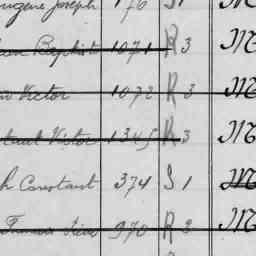 Eugene Joseph 176 S 1 M
Baptiste 1071 R 3 M
Victor 1072 R 3 M
Victor 1345 R 3 M
h Constant 374 S 1 M
Francois 970 R 3 M